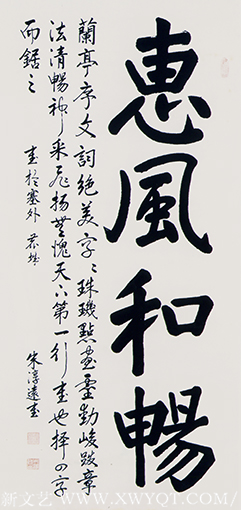 惠風和暢
蘭亭序文詞絕美字〻珠璣點畫靈動峻跋章
法清暢神采飛揚無愧天下第一行書也擇四字
而鋸之 書於塞外
朱淳遠書
新文艺 WWW.XWYQT.COM